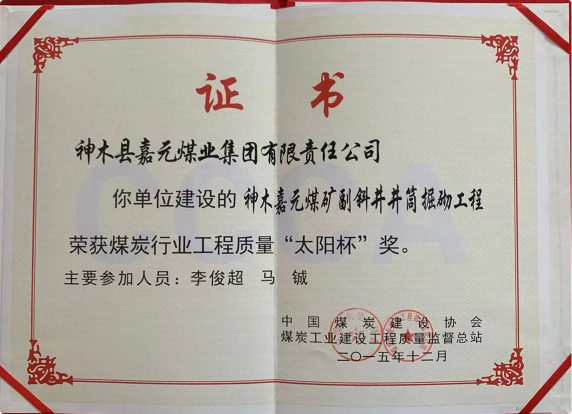 证 书
神木县嘉元煤业集团有限责任公司
你单位建设的 神木嘉元煤矿副斜井井筒掘砌工程
荣获煤炭行业工程质量“太阳杯”奖。
主要参加人员：李俊超 马 铖
中国煤炭建设协会
煤炭工业建设工程质量监督总站
二〇一五年十二月